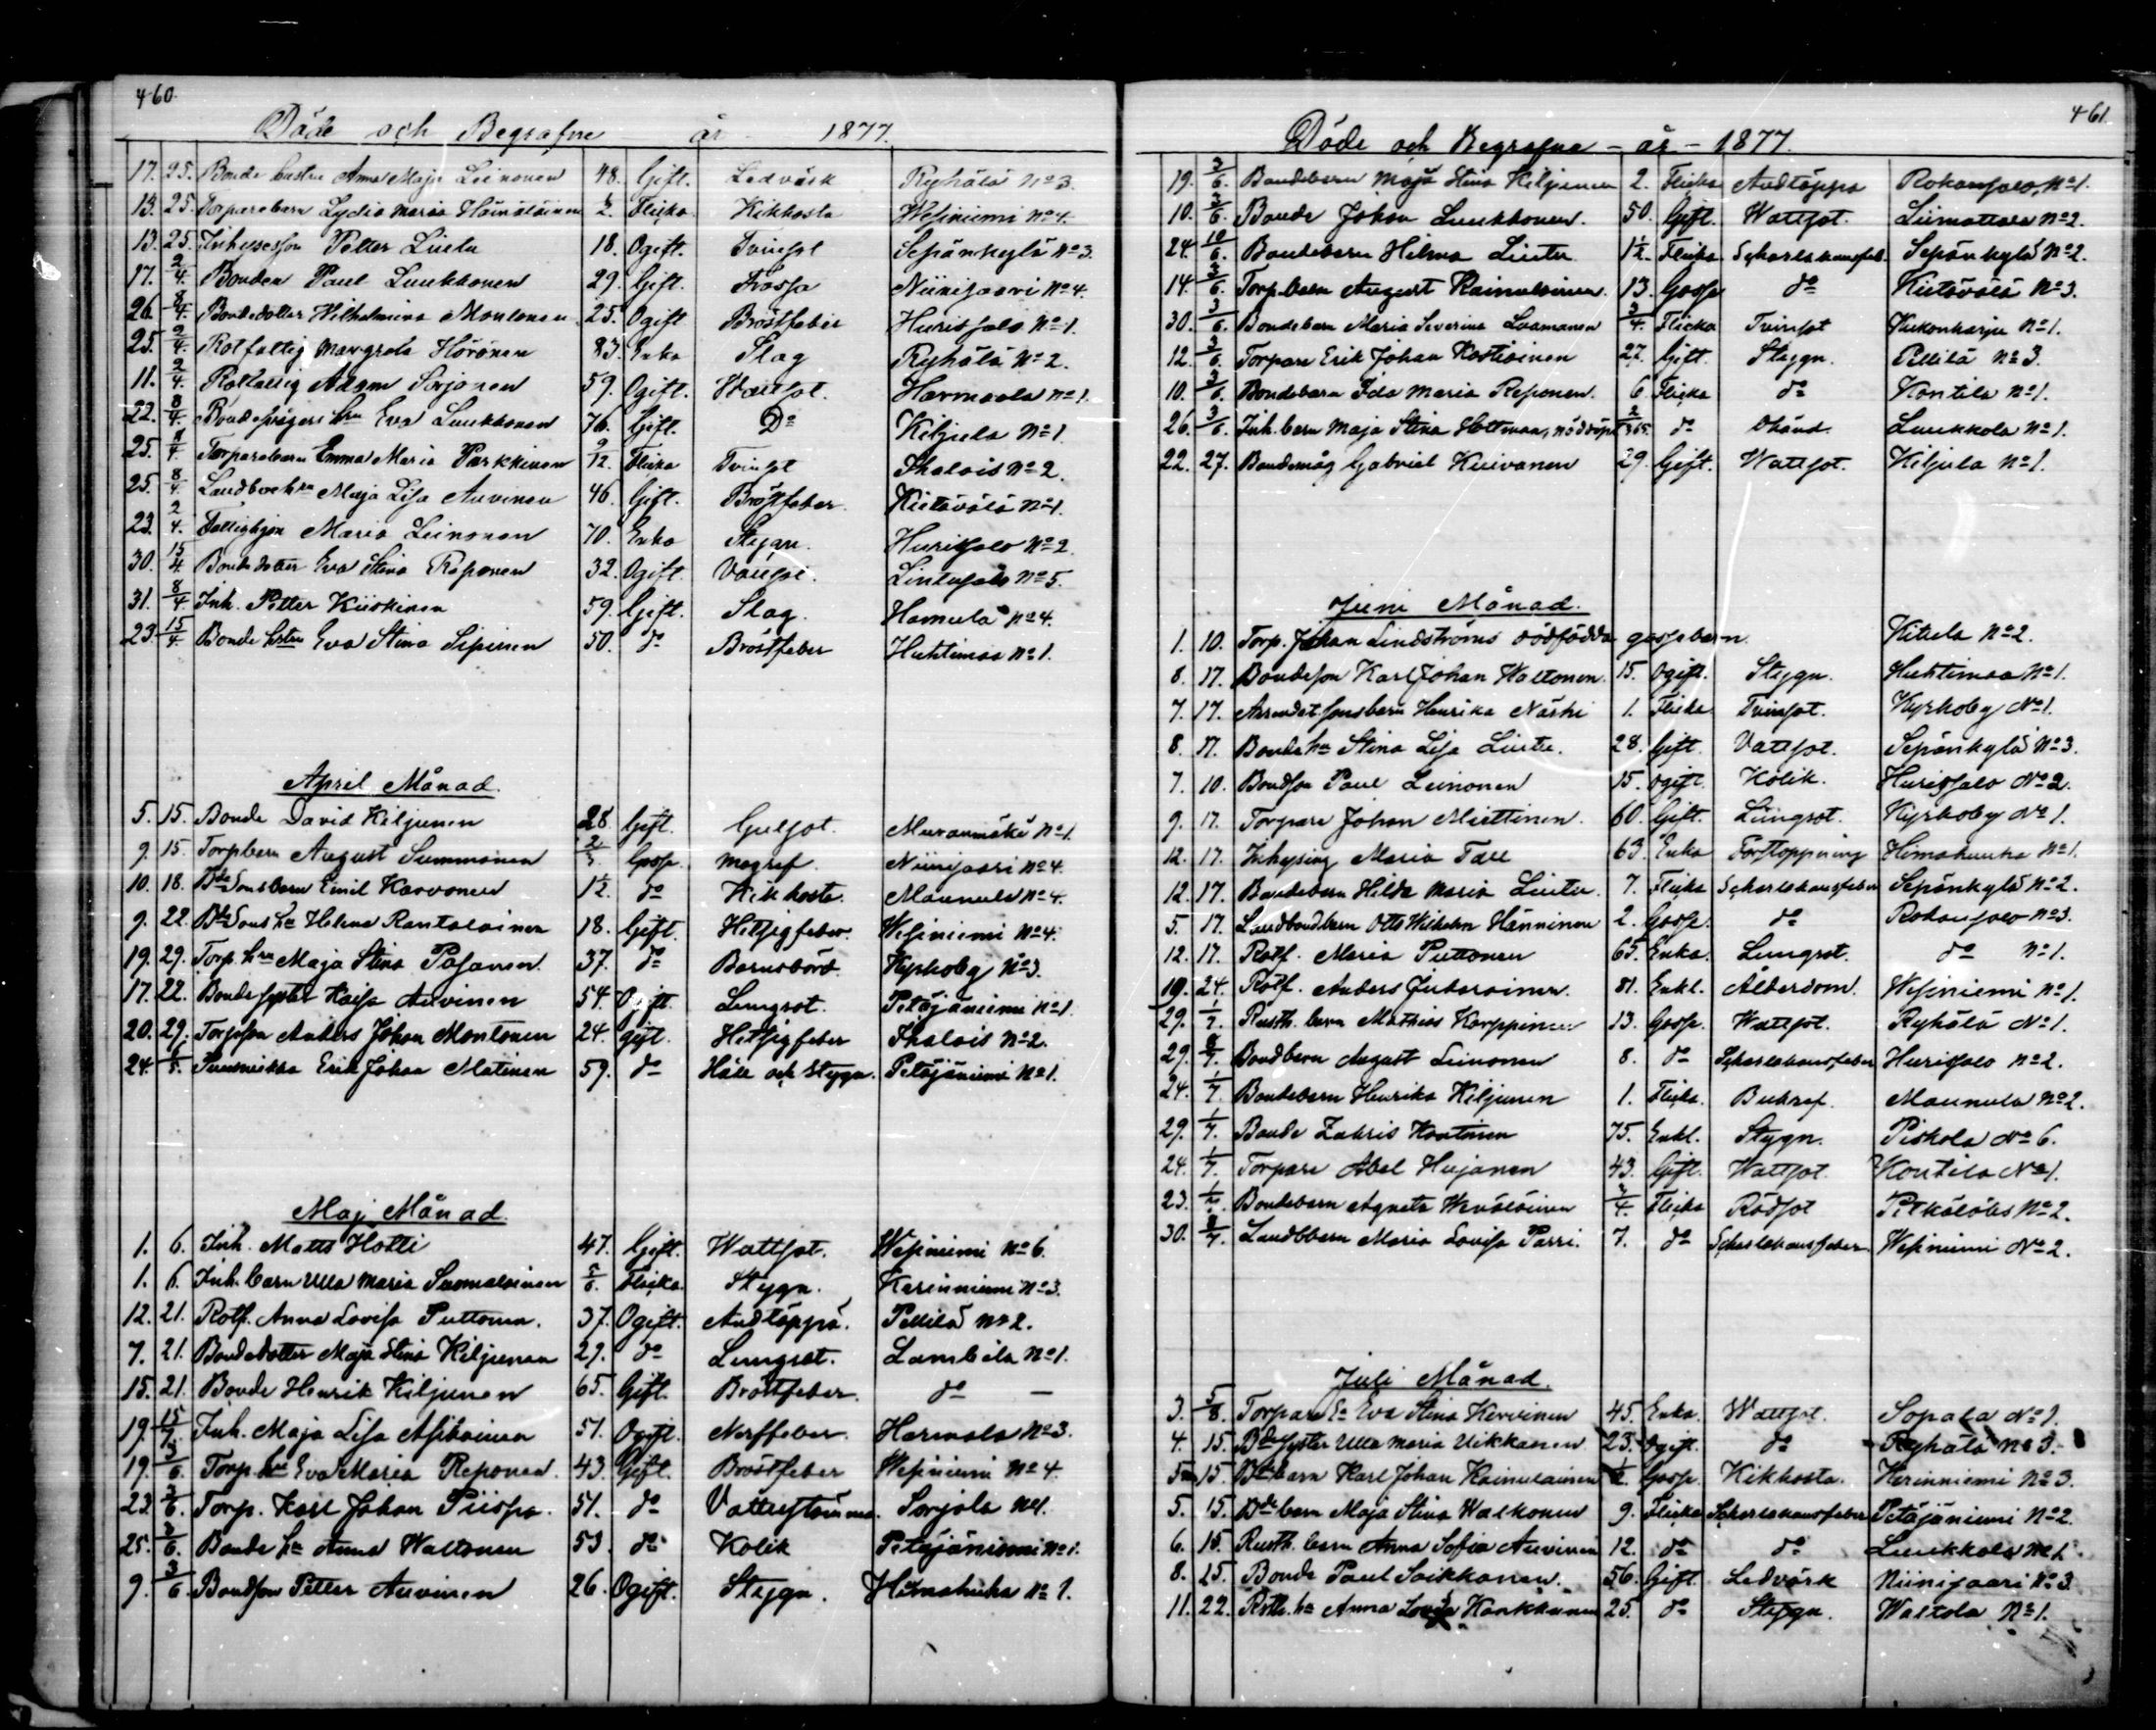 460.
Döde och Begrafne år 1877.
17. 25. Bonde hustru Anna Maja Leinonen 48. Gift. Ledvärk Ryhälä No 3.
13. 25. Torparebarn Lydia Maria Hämäläinen 1/2. Flicka Kikhosta Wesiniemi No 4.
13. 25. Inhysesson Petter Liuta 18. Ogift. Tvinsot Sepänkylä No 3.
17. 2/4. Bonden Paul Luukkonen 29. Gift. Frossa Niinisaari No 4.
26. 8/4. Bondedotter Wilhelmina Montonen 25. Ogift Bröstfeber Hurissalo No 1.
25. 2/4. Rotfattig Margreta Hörönen 83. Enka Slag Ryhälä No 2.
11. 2/4. Rotfattig Adam Sorjonen 59. Ogift. Wattsot. Harmaala No 1.
22. 8/4. Bonde hru Eva Luukkonen 76. Gift. Do Kiljula No 1.
25. 8/4. Torparebarn Emma Maria Parkkinen 9/12. Flicka Tvinsot Ihalais No 2.
25. 8/4. Landbo hru Maja Lisa Auvinen 46. Gift. Bröstfeber. Kietävälä No 1.
23. 2/4. Fattighjon Maria Leinonen 70. Enka Stygn. Hurissalo No 2.
30. 15/4. Bondedotter Eva Stina Reponen 32. Ogift. Vattsot. Lintusalo No 5.
31. 8/4. Inh. Petter Kiiskinen 59. Gift. Slag. Hamula No 4.
23. 15/4. Bonde hstru Eva Stina Sipinen 50. do Bröstfeber Huhtimaa No 1.
April Månad.
5. 15. Bonde David Kiljunen 28. Gift. Gulsot. Muranmäki No 1.
9. 15. Torpbarn August Summanen Gosse. Magref. Niinisaari No 4.
10. 18. Bdesonsbarn Emil Karvonen 1/2. do Kikhosta. Maunula No 4.
9. 22. Bdesons hu Helena Rantalainen 18. Gift. Hetsigfeber. Wesiniemi No 4.
19. 29. Torp. hru Maja Stina Pasanen. 37. do Barnsbörd. Kyrkoby No 3.
17. 22. Bondesyster Kaisa Auvinen 54. Ogift. Lungsot. Petäjäniemi No 1.
20. 29. Torpson Anders Johan Montonen 24. gift. Hetsigfeber Ihalais No 2.
24. 6/5. Erik Johan Matinen 59. do Håll och stygn. Petäjäniemi No 1.
Maj Månad.
1. 6. Inh. Matts Hotti 47. Gift. Wattsot. Wesiniemi No 6.
1. 6. Inh. barn Ulla Maria Suomalainen 5/6. Flicka Stygn. Kerinniemi No 3.
12. 21. Rotf. Anna Lovisa Puttonen. 37. Ogift. Andtäppa. Pellilä No 2.
7. 21. Bondedotter Maja Stina Kiljunen 29. do Lungsot. Lambila No 1.
15. 21. Bonde Henrik Kiljunen 65. Gift. Bröstfeber. do —
19. 15/7. Inh. Maja Lisa Asikainen 51. Ogift. Nerffeber. Harmala No 3.
19. 3/6. Torp. hru Eva Maria Reponen. 43. Gift. Bröstfeber Wesiniemi No 4.
23. 3/6. Torp. Karl Johan Piispa. 51. do Sorjola No 1.
25. 3/6. Bonde hu Anna Waltonen 53. do Kolik Petäjäniemi No 1.
9. 3/6. Bondson Petter Auvinen 26. Ogift. Stygn. Himahuha No 1.
461.
Döde och Begrafne – år – 1877.
19. 3/6. Bondebarn Maja Stina Kiljunen 2. Flicka Andtäppa Rokansalo, No 1.
10. 3/6. Bonde Johan Luukkonen. 50. Gift. Wattsot. Liimattala No 2.
24. 10/6. Bondebarn Hilma Liuta 1 1/2. Flicka Scharlakansfeb. Sepänkylä No 2.
14. 3/6. Torp. barn August Kainulainen. 13. Gosse do Kietävälä No 3.
30. 3/6. Bondebarn Maria Severina Laamanen 3/4. Flicka Tvinsot Kukonharju No 1.
12. 3/6. Torpare Erik Johan Kostiainen 27. Gift. Stygn. Pellilä No 3.
10. 3/6. Bondebarn Ida Maria Reponen. 6. Flicka do Kontila No 1.
26. 3/6. Inh. barn Maja Stina Hottman, nöddöpt 2/365. do Okänd. Luukkola No 1.
22. 27. Bondemåg Gabriel Kuivanen 29. Gift. Wattsot. Kiljula No 1.
Juni Månad.
1. 10. Torp. Johan Lindströms dödfödda gossebarn. Kitula No 2.
8. 17. Bondeson Karl Johan Waltonen. 15. Ogift. Stygn. Huhtimaa No 1.
7. 17. Arrendat. sonsbarn Henrika Närhi 1. Flicka Tvinsot. Kyrkoby No 1.
8. 17. Bonde hu Stina Lisa Liuta. 28. Gift. Vattsot. Sepänkylä No 3.
7. 10. Bondson Paul Leinonen 15. ogift. Kolik. Hurissalo No 2.
9. 17. Torpare Johan Miettinen. 60. Gift. Lungsot. Kyrkoby No 1.
12. 17. Inhysing Maria Tall 63. Enka Förstoppning Himahuuha No 1.
12. 17. Bondebarn Hilda Maria Liuta. 7. Flicka Scharlakansfeber Sepänkylä No 2.
5. 17. Landbondbarn Otto Wilhelm Hänninen 2. Gosse. do Rokansalo No 3.
12. 17. Rotf. Maria Puttonen 65. Enka. Lungsot. do No 1.
19. 24. Rotf. Anders Juteroinen. 81. Enkl. Ålderdom. Wesiniemi No 1.
29. 1/7. Rusth. barn Mathias Karppinen 13. Gosse. Wattsot. Ryhälä No 1.
29. 8/7. Bondbarn August Leinonen 8. do Scharlakansfeber Hurissalo No 2.
24. 1/7. Bondebarn Henrika Kiljunen 1. Flicka. Bukref. Maunula No 2.
29. 1/7. Bonde Zakris Kontinen 75. Enkl. Stygn. Piskola No 6.
24. 1/7. Torpare Abel Hujanen 43. Gift. Wattsot. Kontila No 1.
23. 1/7. Bondebarn Agneta Wenäläinen 3/4. Flicka Rödsot Pitkälahti No 2.
30. 8/7. Landbbarn Maria Lovisa Parri. 7. do Scharlakansfeber. Wesiniemi No 2.
Juli Månad.
3. 5/8. Torpare Ea Eva Stina Kervinen 45. Enka. Wattsot. Sopala No 1.
4. 15. Bdesyster Ulla Maria Uikkanen 23. Ogift. do Ryhälä No 3.
5. 15. Bdebarn Karl Johan Kainulainen 1/2. Gosse. Kikhosta. Kerinniemi No 3.
5. 15. Bdebarn Maja Stina Walkonen 9. Flicka Scharlakansfeber Petäjäniemi No 2.
6. 15. Rusth. barn Anna Sofia Auvinen 12. do do Luukkola No 1.
8. 15. Bonde Paul Soikkanen. 56. Gift. Ledvärk Niinisaari No 3.
11. 22. Rsth. hu Anna Lovisa Kankkunen 25. do Stygn. Waltola No 1.